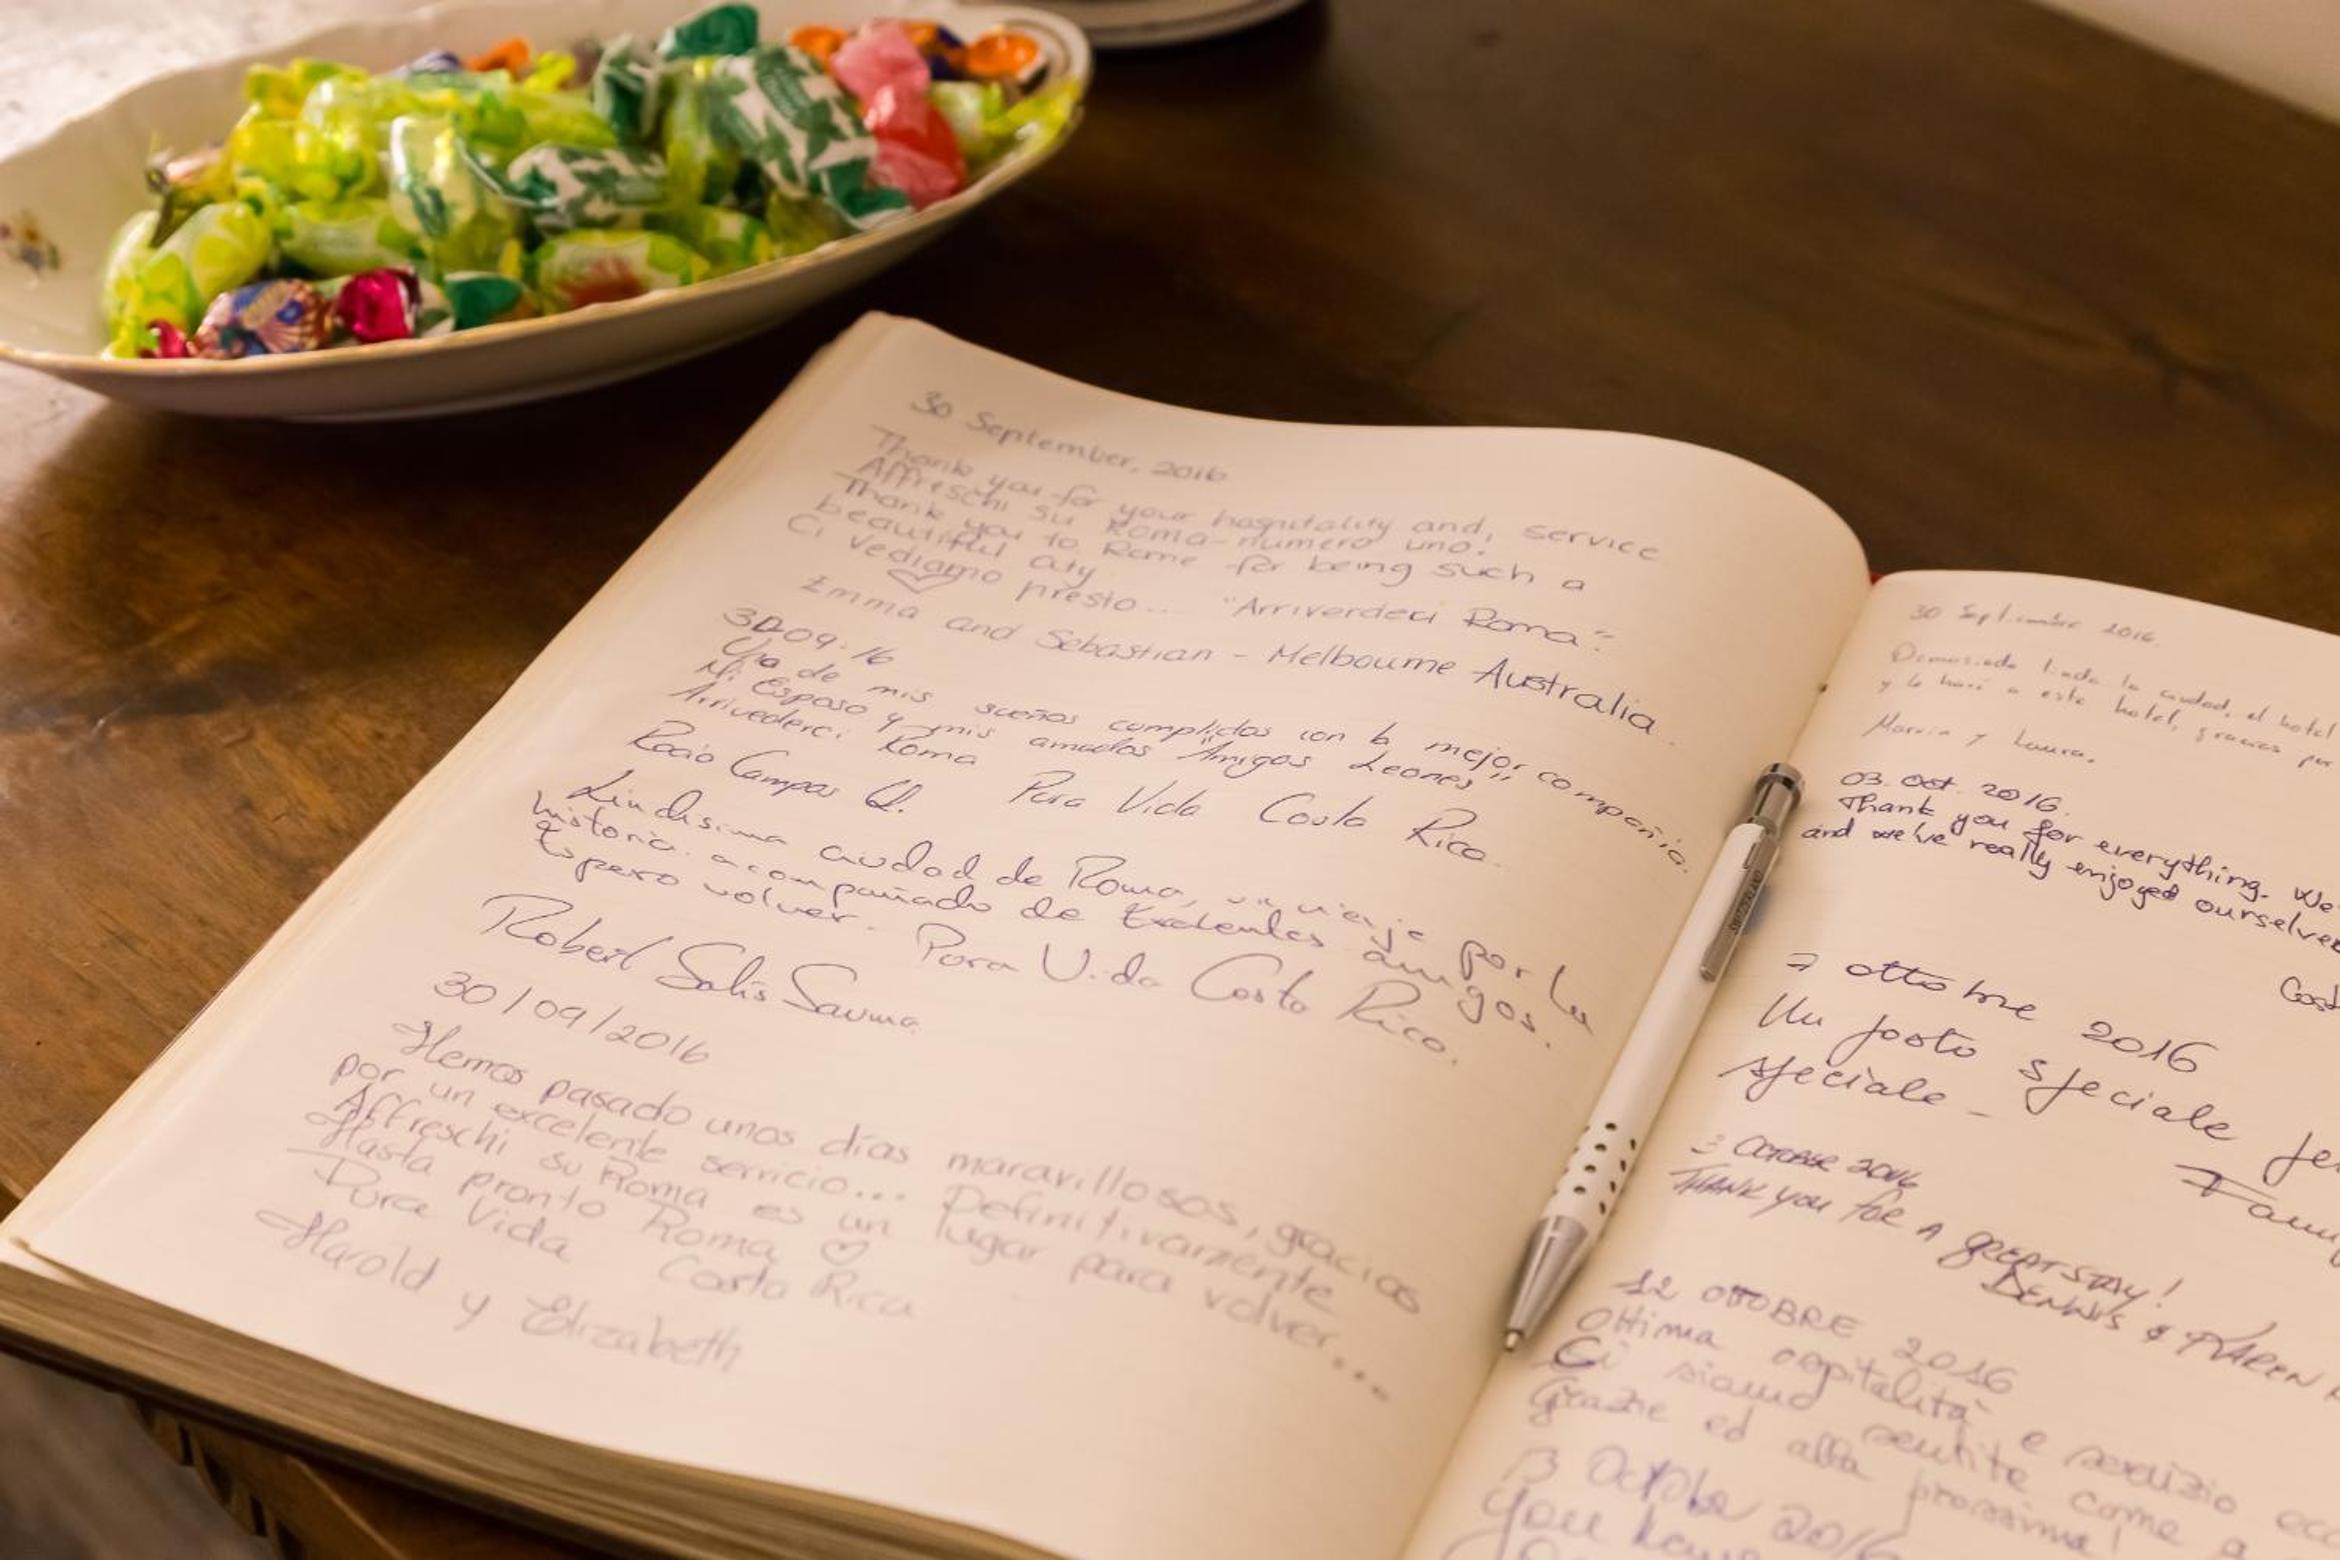 30 September, 2016
Thank you for your hospitality and, service
Affreschi su Roma - numero uno.
Thank you to Rome for being such a
beautiful city
Ci vediamo presto... "Arriverdeci Roma".
Emma and Sebastian - Melbourne Australia.
30.09.16
Una de mis sueños cumplidos con la mejor compañia.
Mi Esposo y mis amados "Amigos Leones"
Arrivederci Roma
Pura Vida Costa Rica.
Rocio Campos Q.
Lindisima ciudad de Roma, un viaje por la
historia acompañado de Exelentes amigos.
Espero volver. Pura Vida Costa Rico.
Robert Solis Sauma
30/09/2016
Hemos pasado unos días maravillosos, gracias
por un excelente servicio... Definitivamente
Affreschi su Roma es un lugar para volver...
Hasta pronto Roma
Pura Vida Costa Rica
Harold y Elizabeth
30 Septiembre 2016
Demasiado linda la ciudad, el hotel
y lo haré a este hotel, gracias por
Maria y Laura.
03. Oct. 2016.
Thank you for everything. We
and we've really enjoyed ourselves
Cost
7 ottobre 2016
Un posto speciale
speciale -
Fam
3 OCTOBER 2016
THANK YOU FOR A GREAT STAY!
DENNIS & KAREN
12 OTTOBRE 2016
Ottima ospitalità e servizio ecc
Ci siamo sentite come a
Grazie ed alla prossima!
13 October 2016
You have